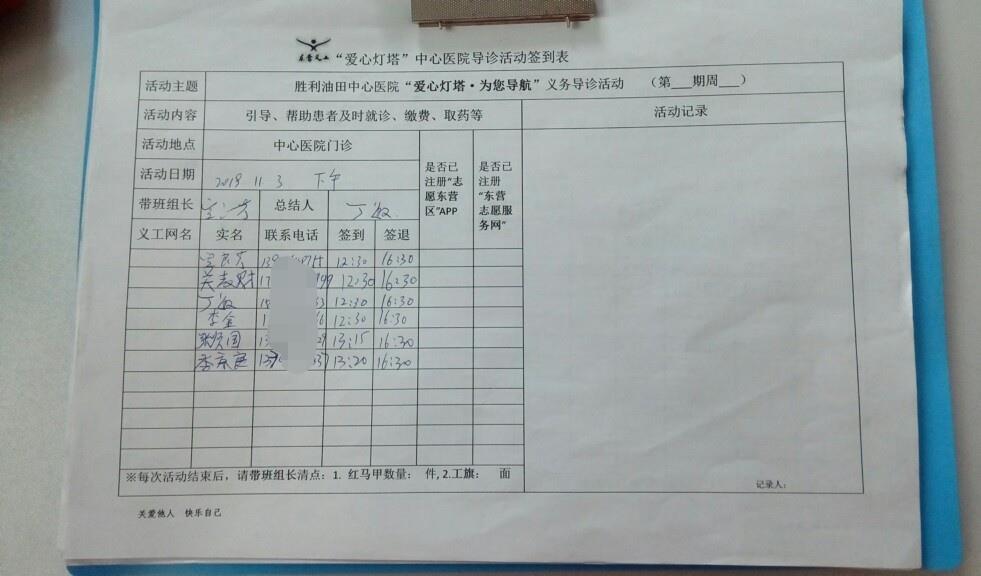 东营义工
“爱心灯塔”中心医院导诊活动签到表
活动主题 胜利油田中心医院“爱心灯塔·为您导航”义务导诊活动 （第___期周___）
活动内容 引导、帮助患者及时就诊、缴费、取药等 活动记录
活动地点 中心医院门诊 是否已注册“志愿东营区”APP 是否已注册“东营志愿服务网”
活动日期 2019 11 3 下午
带班组长 总结人 丁敏
义工网名 实名 联系电话 签到 签退
12:30 16:30
吴志财 12:30 16:30
丁敏 12:30 16:30
李金 12:30 16:30
张贤国 13:15 16:30
13:20 16:30
※每次活动结束后，请带班组长清点：1. 红马甲数量： 件, 2.工旗： 面
记录人：
关爱他人 快乐自己